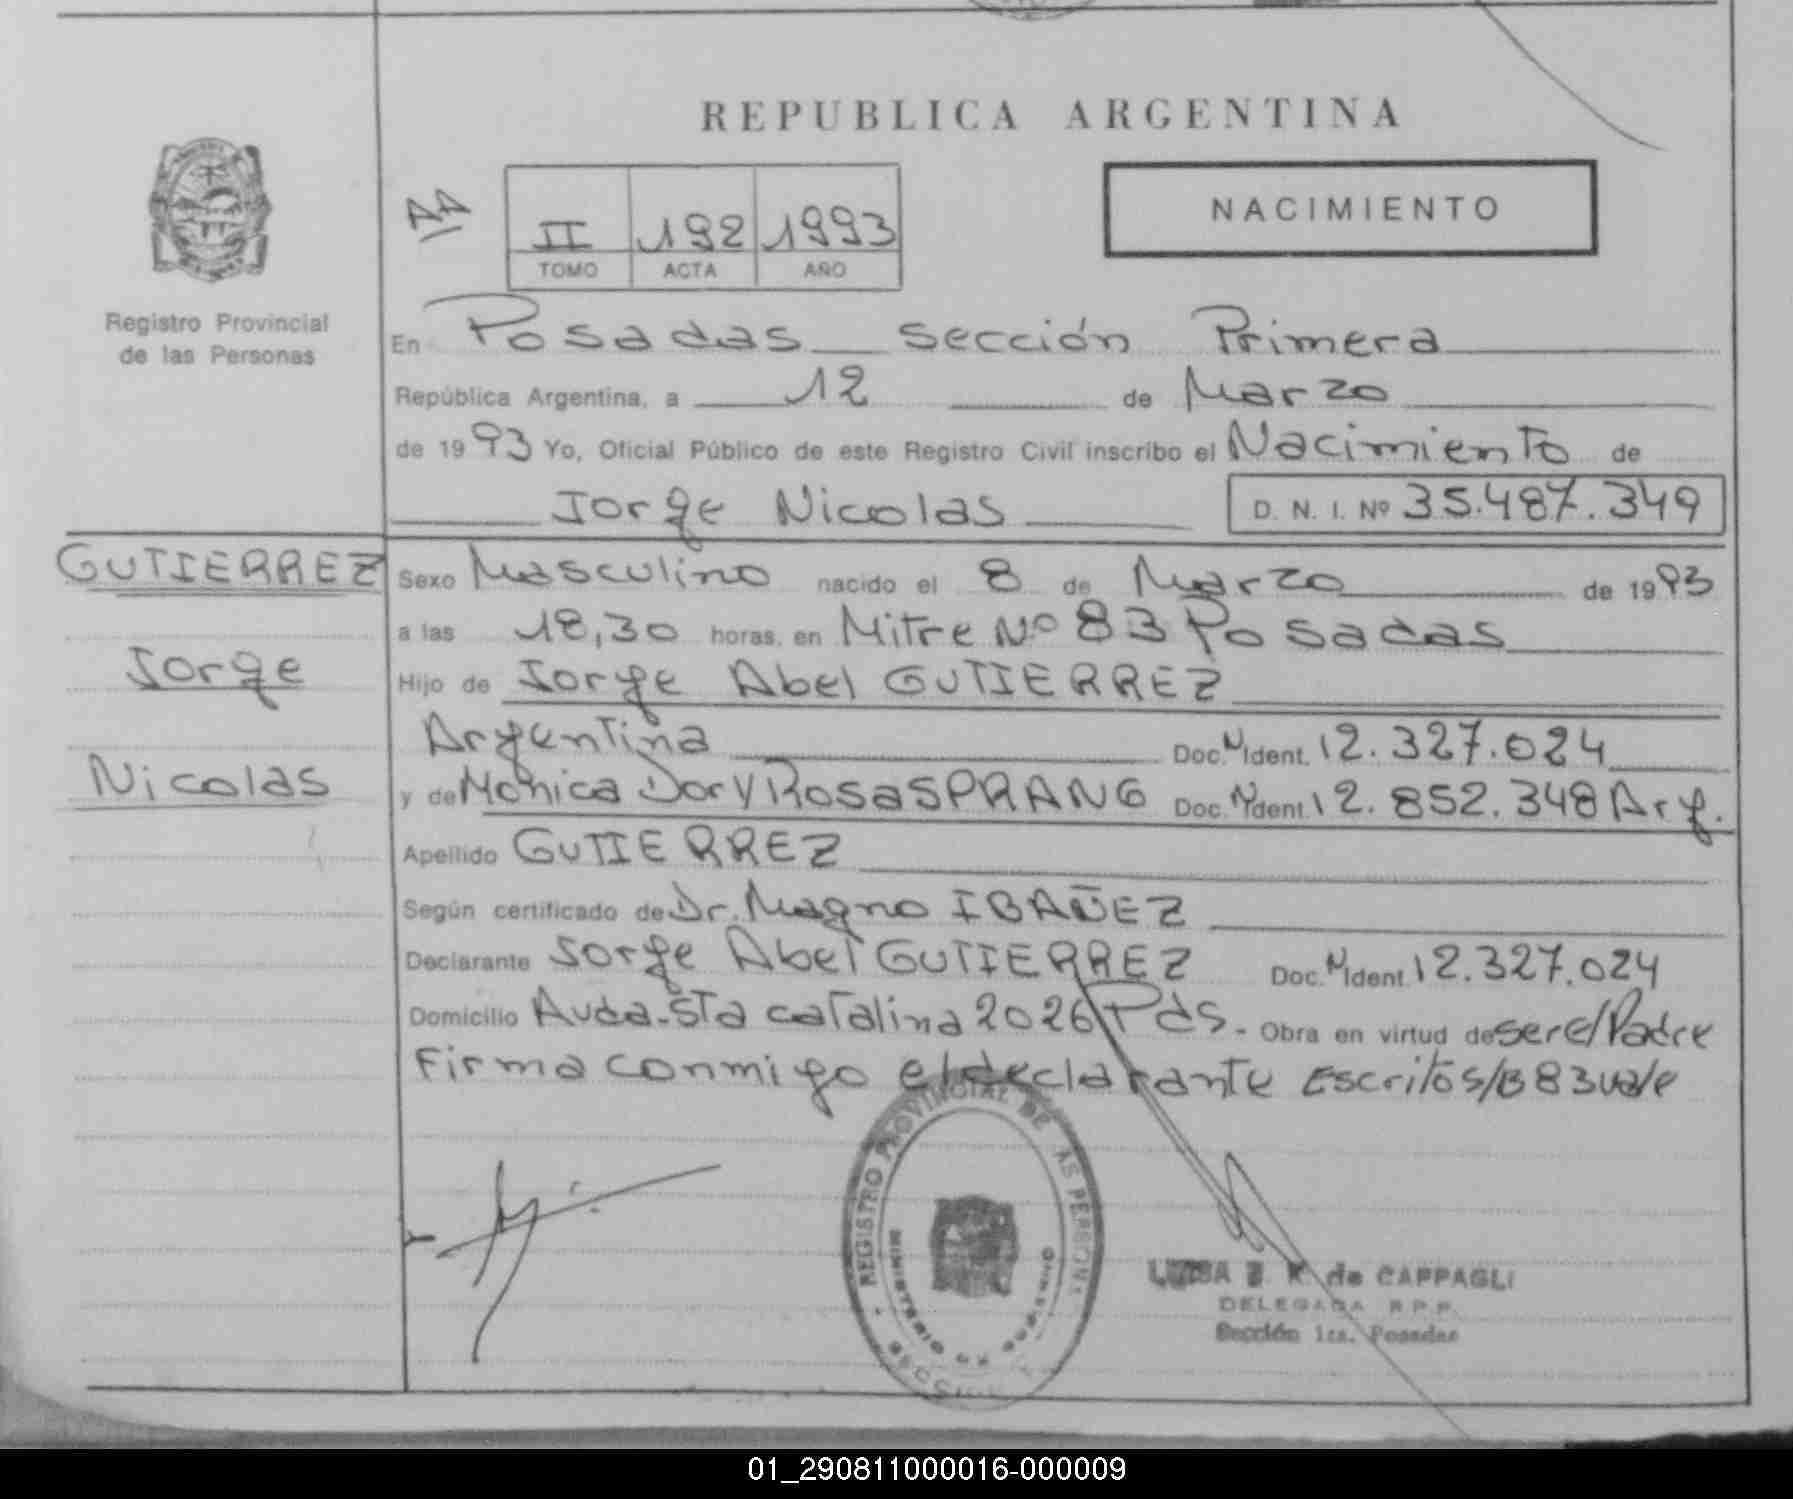 REPUBLICA ARGENTINA
NACIMIENTO
AA
II 192 1993
TOMO ACTA AÑO
Registro Provincial
de las Personas
En Posadas sección Primera
República Argentina, a 12 de Marzo
de 1993 Yo, Oficial Público de este Registro Civil inscribo el Nacimiento de
Jorge Nicolas D. N. I. Nº 35.487.349
GUTIERREZ
Jorge
Nicolas
Sexo Masculino nacido el 8 de Marzo de 1993
a las 18,30 horas, en Mitre Nº 83 Posadas
Hijo de Jorge Abel GUTIERREZ
Argentina Doc. N Ident. 12.327.024
y de Monica Dory Rosa SPRANG Doc. N Ident. 12.852.348 Arg.
Apellido GUTIERREZ
Según certificado de Dr. Magno IBAÑEZ
Declarante Jorge Abel GUTIERREZ Doc. N Ident. 12.327.024
Domicilio Avda. Sta catalina 2026 Pds. - Obra en virtud de ser el Padre
Firma conmigo el declarante Escrito s/B 83 vale
REGISTRO PROVINCIAL DE LAS PERSONAS
MINISTERIO DE GOBIERNO
LUISA de CAPPAGLI
DELEGADA R.P.P.
Sección 1ra. Posadas
01_290811000016-000009